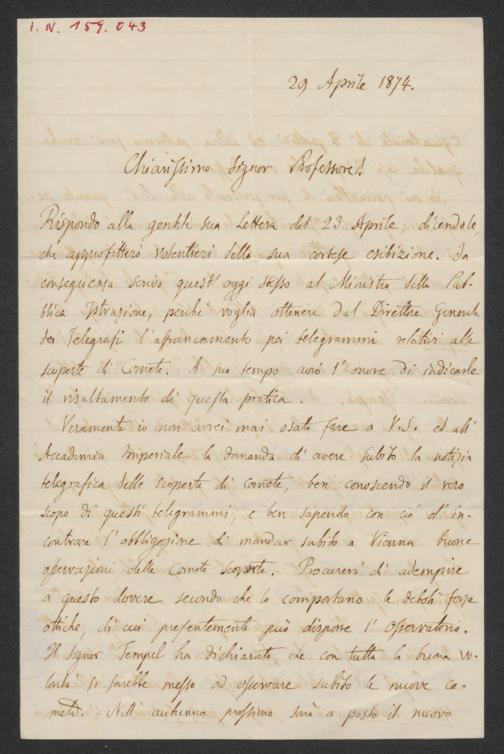 I.N. 159.043
29 Aprile 1874.
Chiarissimo Signor Professore!
Rispondo alla gentile sua Lettera del 23 Aprile, dicendole,
che approfitterò volentieri della sua cortese esibizione. In
conseguenza scrivo quest' oggi stesso al Ministro della Pub-
blica Istruzione, perchè voglia ottenere dal Direttore Generale
dei Telegrafi l'affrancamento pei telegrammi relativi alle
scoperte di Comete. A suo tempo avrò l'onore di indicarle
il risultamento di questa pratica.
Veramente io non avrei mai osato fare a V.S. ed all'
Accademia Imperiale la domanda d'avere subito la notizia
telegrafica delle scoperte di Comete, ben conoscendo il vero
scopo di questi telegrammi, e ben sapendo con ciò d'in-
contrare l'obbligazione di mandar subito a Vienna buone
osservazioni delle Comete scoperte. Procurerò di adempire
a questo dovere secondo che lo comportano le deboli forze
ottiche, di cui presentemente può disporre l'Osservatorio.
Il Signor Tempel ha dichiarato, che con tutta la buona vo-
lontà si sarebbe messo ad osservare subito le nuove co-
mete. Nell' autunno prossimo sarà a posto il nuovo